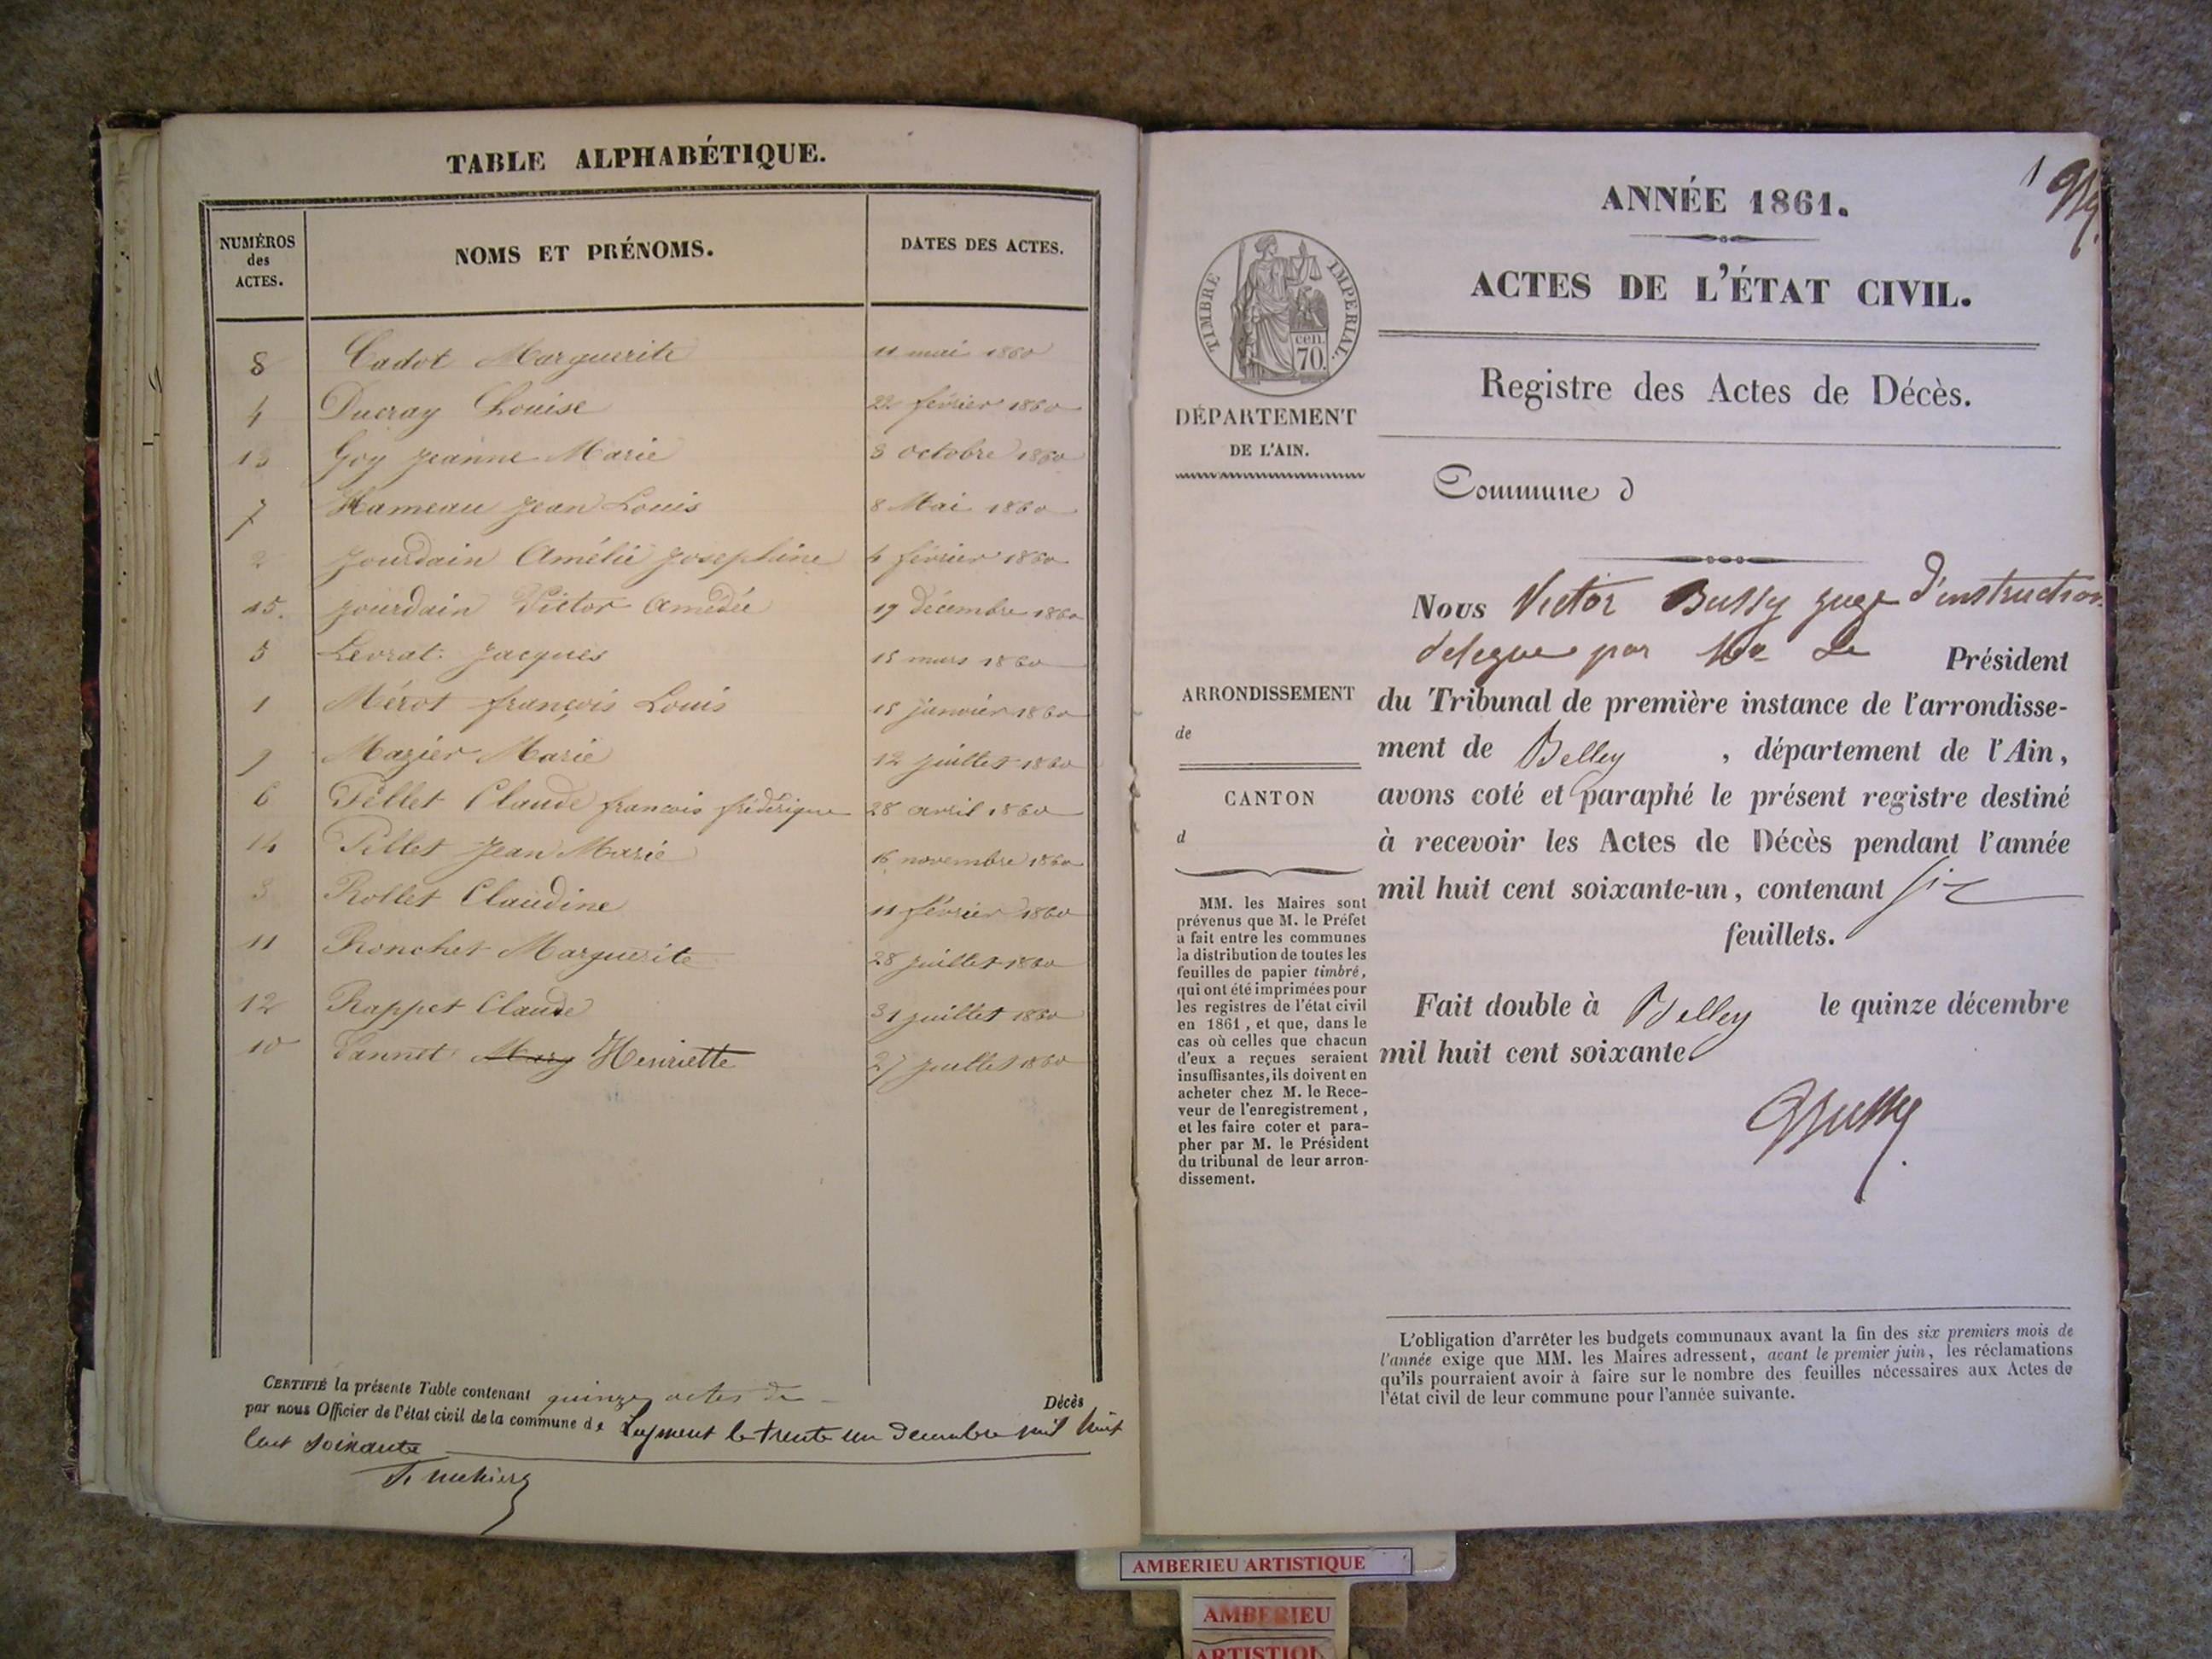 TABLE ALPHABÉTIQUE.
NUMÉROS
des
ACTES.
NOMS ET PRÉNOMS.
DATES DES ACTES.
8 Cadot Marguerite 11 mai 1860
4 Ducray Louise 22 février 1860
13 Goy Jeanne Marie 3 octobre 1860
7 Hameau Jean Louis 8 Mai 1860
2 Jourdain Amélie Josephine 4 février 1860
15. Jourdain Victor Amédée 19 décembre 1860
5 Levrat Jacques 15 mars 1860
1 Mérot françois Louis 15 janvier 1860
9 Mazier Marie 12 juillet 1860
6 Pellet Claude francois frédérique 28 avril 1860
14 Pillet Jean Marie 16 novembre 1860
3 Rollet Claudine 11 février 1860
11 Ronchet Marguerite 28 juillet 1860
12 Rappet Claude 31 juillet 1860
10 Vannet Mary Henriette 27 juillet 1860
CERTIFIÉ la présente Table contenant quinze actes de Décès
par nous Officier de l'état civil de la commune de Leyment le trente un decembre mil huit
cent soixante
1
ANNÉE 1861.
ACTES DE L'ÉTAT CIVIL.
Registre des Actes de Décès.
TIMBRE IMPERIAL.
cen.
70.
DÉPARTEMENT
DE L'AIN.
Commune d
Nous Victor Bussy juge d'instruction
delegue par Mr le Président
du Tribunal de première instance de l'arrondisse-
ment de Belley , département de l'Ain,
avons coté et paraphé le présent registre destiné
à recevoir les Actes de Décès pendant l'année
mil huit cent soixante-un, contenant six
feuillets.
Fait double à Belley le quinze décembre
mil huit cent soixante
Bussy
ARRONDISSEMENT
de
CANTON
d
MM. les Maires sont
prévenus que M. le Préfet
a fait entre les communes
la distribution de toutes les
feuilles de papier timbré,
qui ont été imprimées pour
les registres de l'état civil
en 1861, et que, dans le
cas où celles que chacun
d'eux a reçues seraient
insuffisantes, ils doivent en
acheter chez M. le Rece-
veur de l'enregistrement,
et les faire coter et para-
pher par M. le Président
du tribunal de leur arron-
dissement.
L'obligation d'arrêter les budgets communaux avant la fin des six premiers mois de
l'année exige que MM. les Maires adressent, avant le premier juin, les réclamations
qu'ils pourraient avoir à faire sur le nombre des feuilles nécessaires aux Actes de
l'état civil de leur commune pour l'année suivante.
AMBERIEU ARTISTIQUE
AMBERIEU